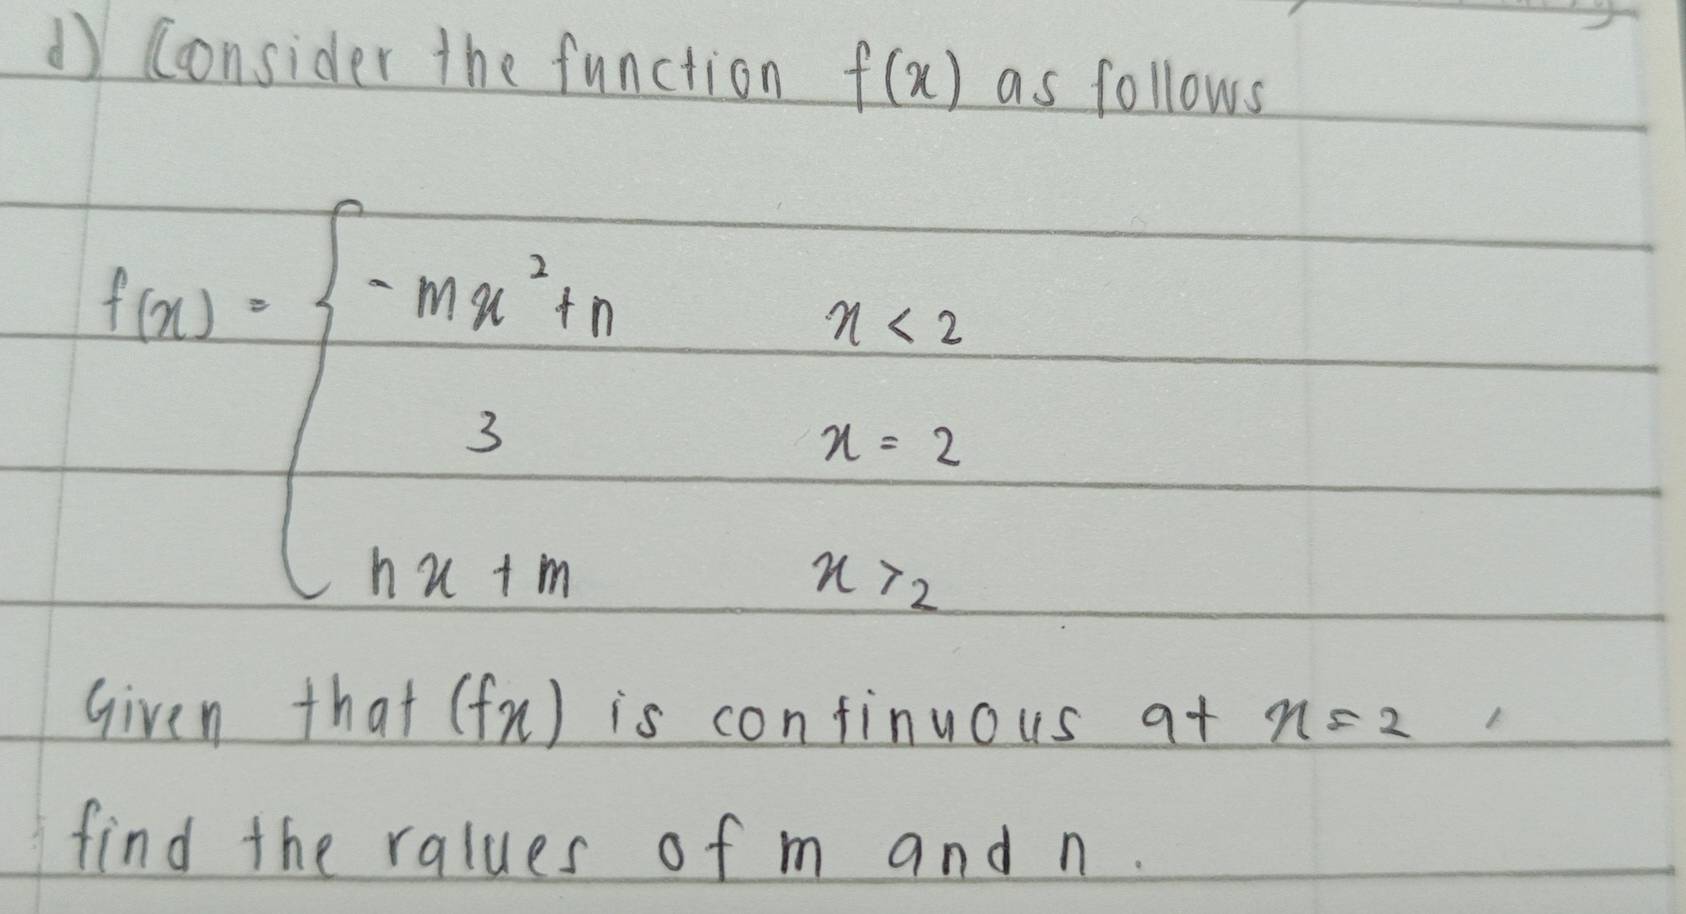 d) Consider the function f(x) as follows
f(x) = { -mx² + n x < 2
3 x = 2
nx + m x > 2
Given that (fx) is continuous at x = 2,
find the values of m and n.